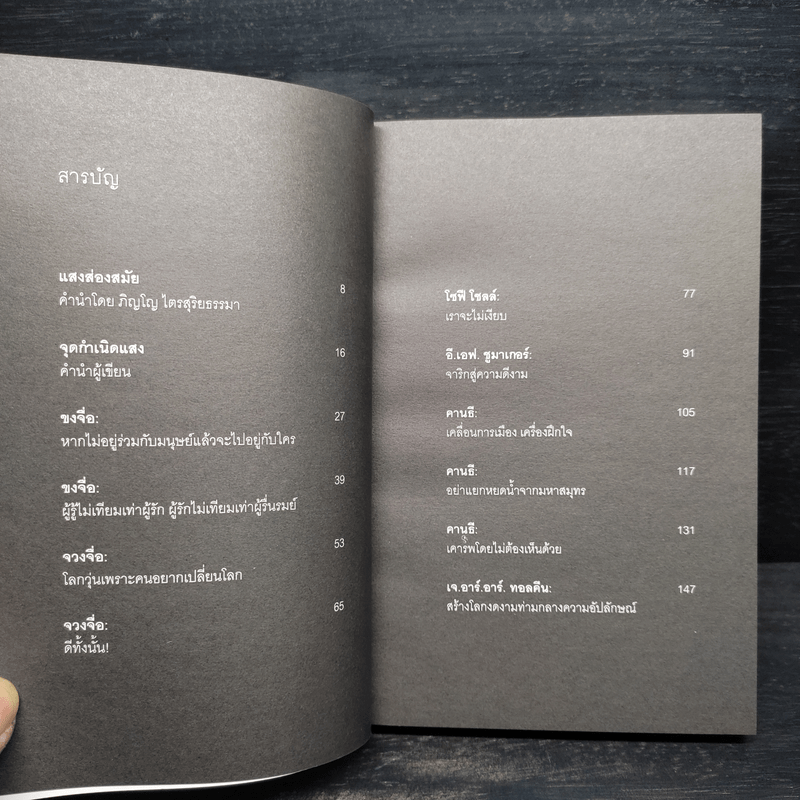 สารบัญ
แสงส่องสมัย 8
คำนำโดย ภิญโญ ไตรสุริยธรรมา
จุดกำเนิดแสง 16
คำนำผู้เขียน
ขงจื่อ: 27
หากไม่อยู่ร่วมกับมนุษย์แล้วจะไปอยู่กับใคร
ขงจื่อ: 39
ผู้รู้ไม่เทียมเท่าผู้รัก ผู้รักไม่เทียมเท่าผู้รื่นรมย์
จวงจื่อ: 53
โลกวุ่นเพราะคนอยากเปลี่ยนโลก
จวงจื่อ: 65
ดีทั้งนั้น!
โซฟี โชลล์: 77
เราจะไม่เงียบ
อี.เอฟ. ชูมาเกอร์: 91
จาริกสู่ความดีงาม
คานธี: 105
เคลื่อนการเมือง เครื่องฝึกใจ
คานธี: 117
อย่าแยกหยดน้ำจากมหาสมุทร
คานธี: 131
เคารพโดยไม่ต้องเห็นด้วย
เจ.อาร์.อาร์. ทอลคีน: 147
สร้างโลกงดงามท่ามกลางความอัปลักษณ์